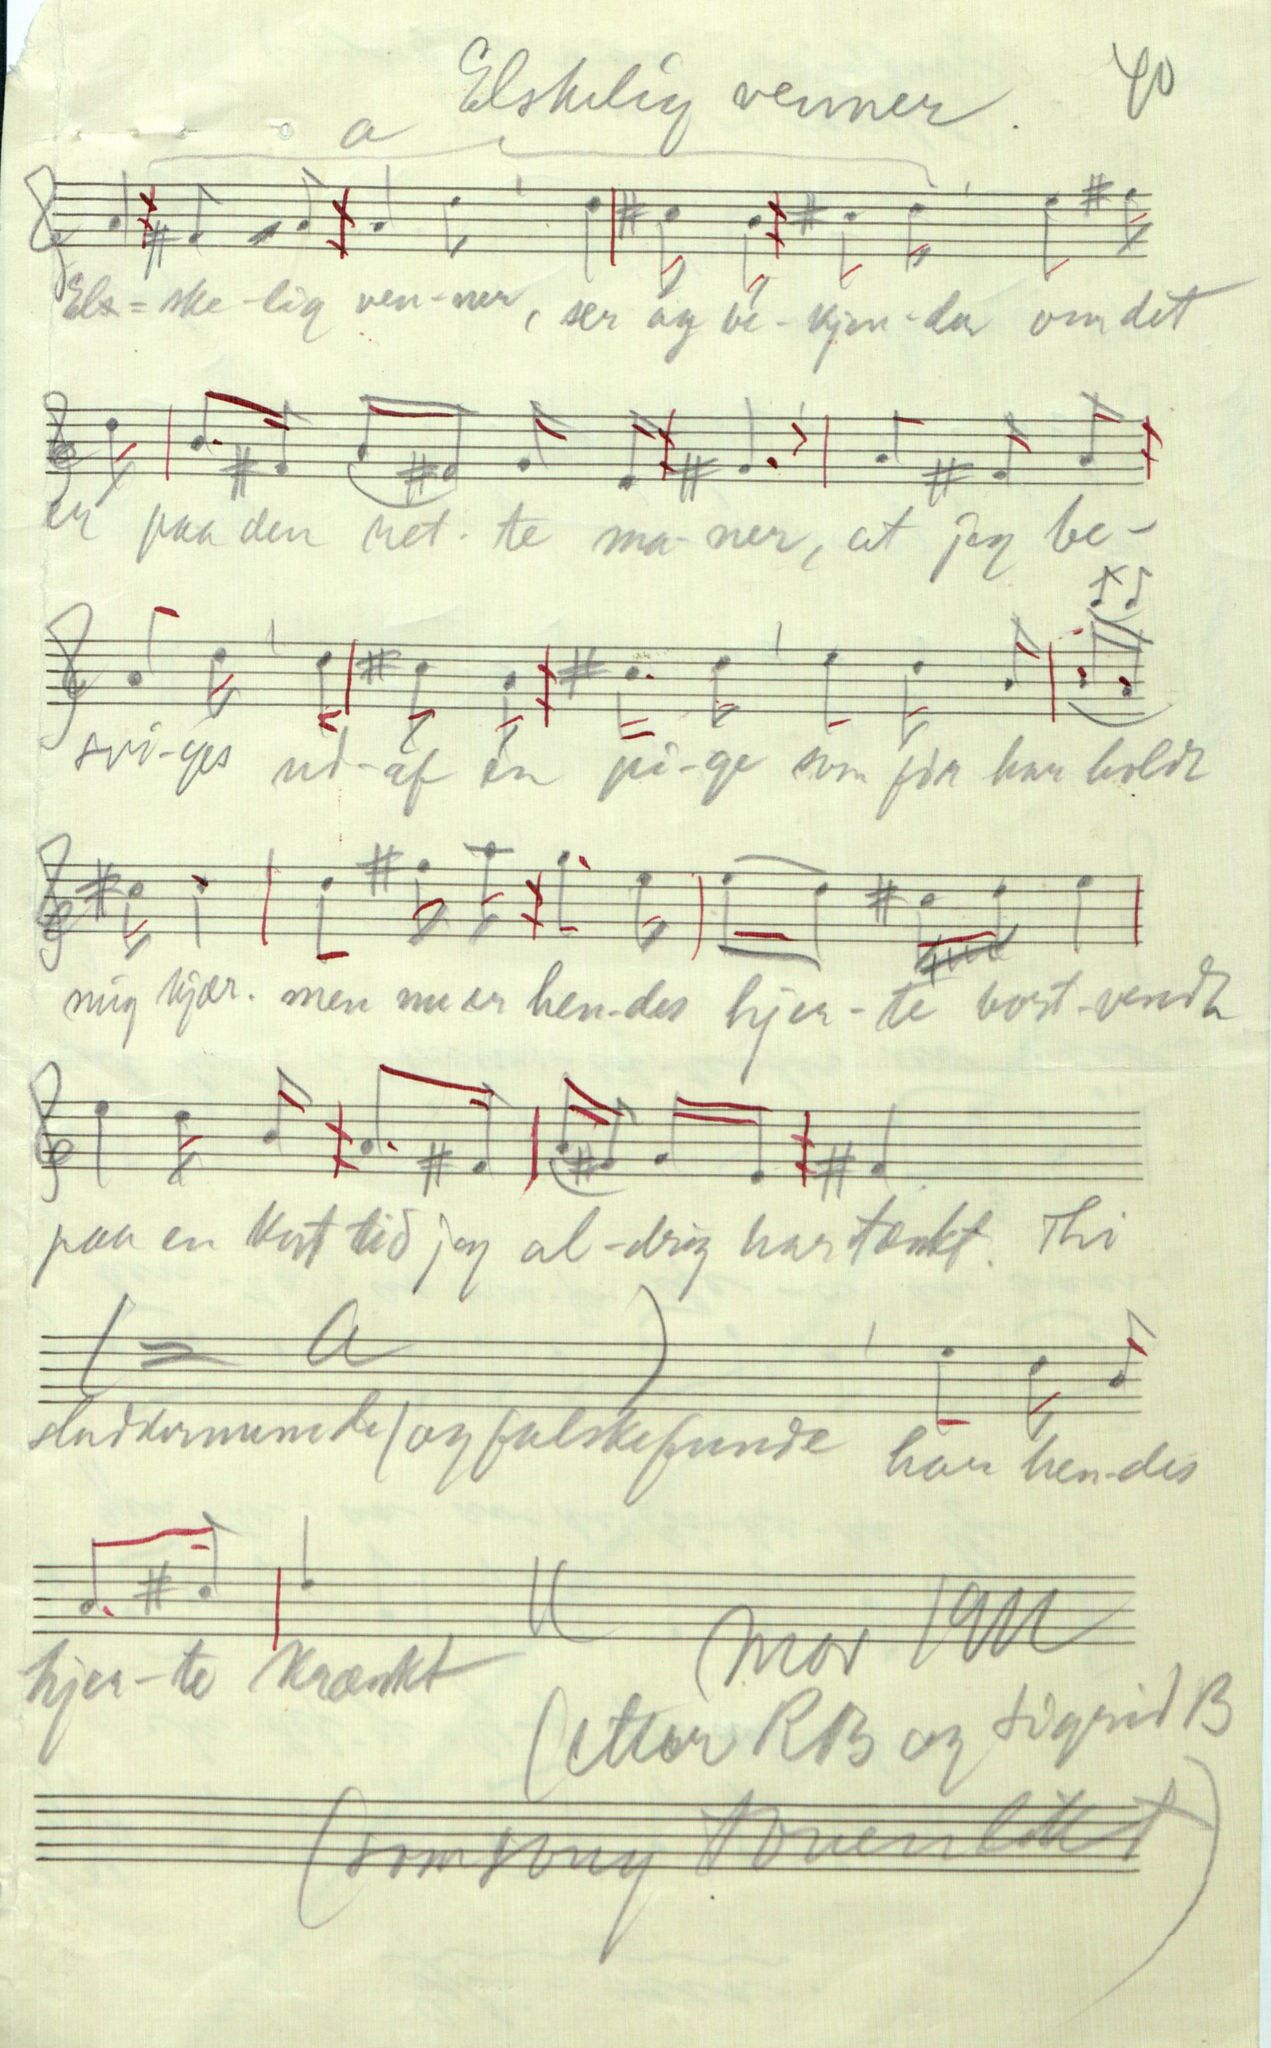 Elskelig venner. 40
a
Els=ske-lig ven-ner, ser og be-kjen-der om det
er paa den ret-te ma-ner, at jeg be-
svi-ges ud-af en pi-ge som før har holdt
mig kjær. men nu er hen-des hjer-te bort-vendt
paa en kort tid jeg al-drig har tænkt. Thi
(= a)
sluddermunde / og falske funde har hen-des
hjer-te krænkt
mor 1911
(etter RB og Sigrid B
(som song